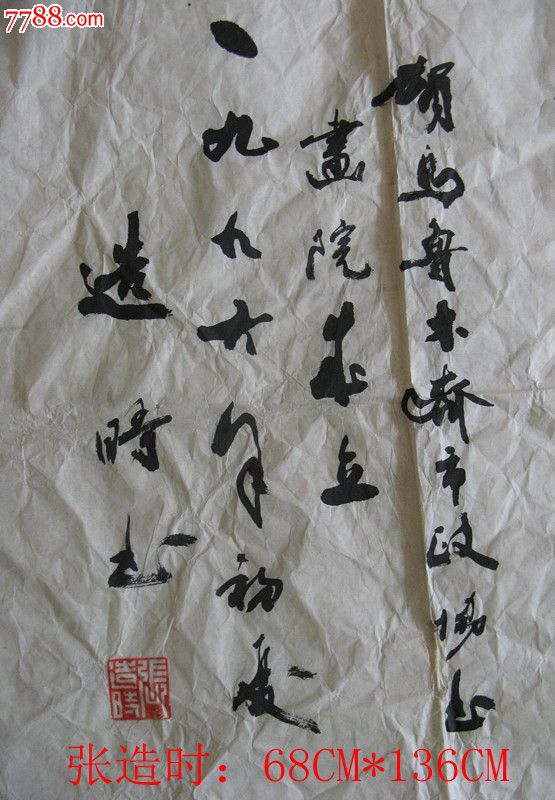 7788.com
贺乌鲁木齐市政协书
畫院成立
一九九六年初夏
造時书
張造時
张造时：68CM*136CM